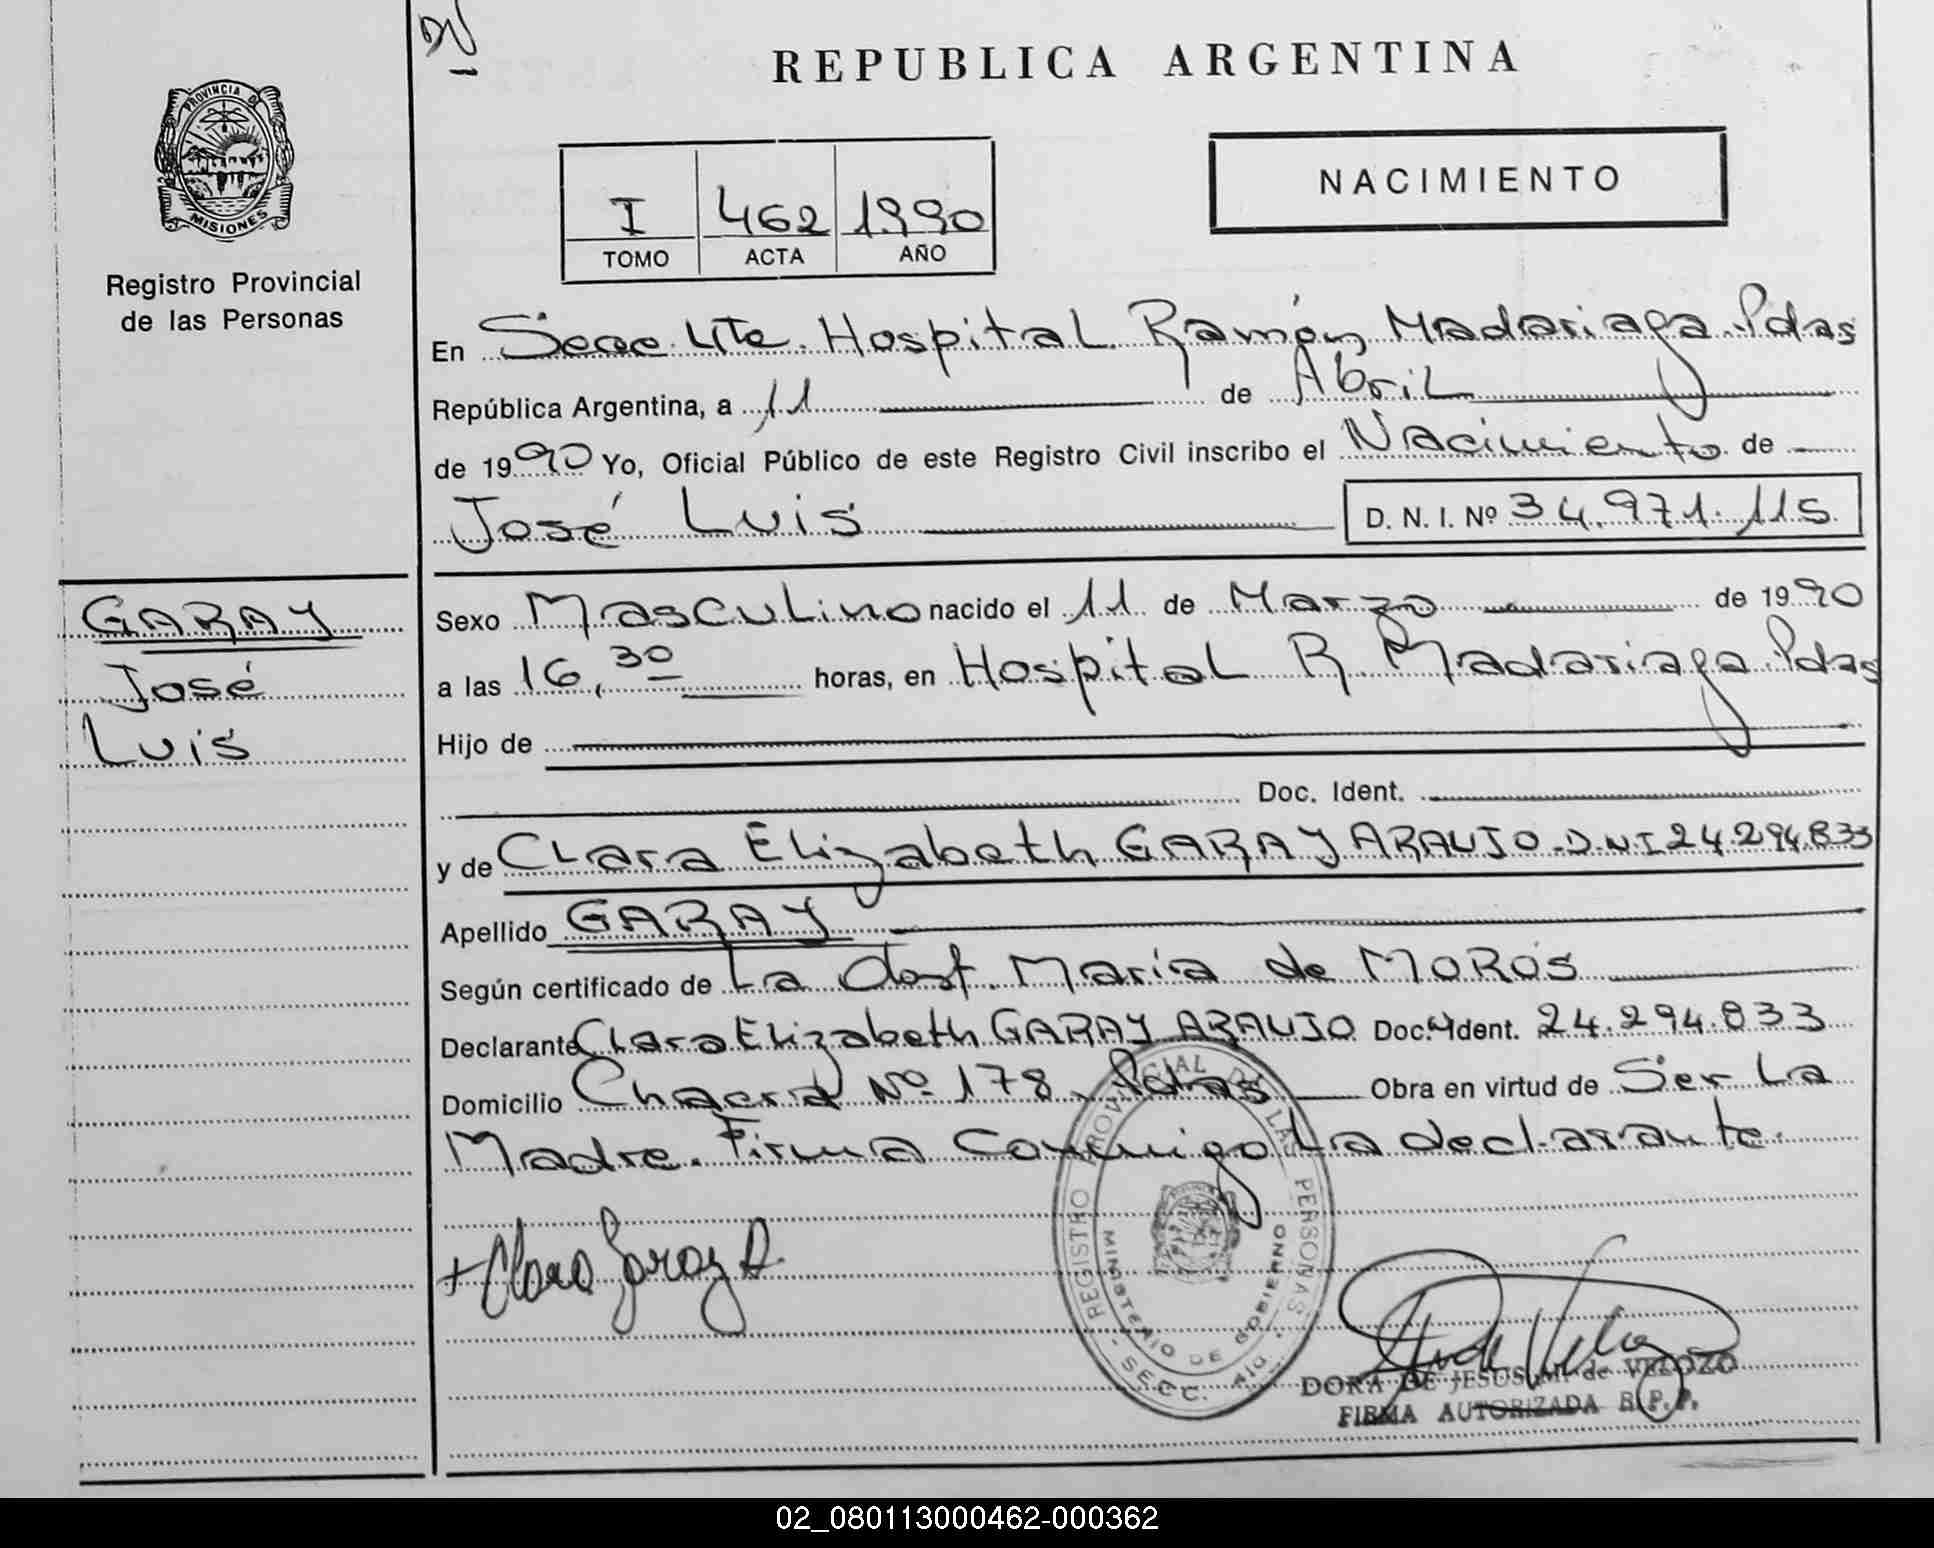 DV
REPUBLICA ARGENTINA
PROVINCIA DE
MISIONES
Registro Provincial
de las Personas
I 462 1990
TOMO ACTA AÑO
NACIMIENTO
En Secc. 4ta. Hospital Ramón Madariaga. Pdas
República Argentina, a 11 de Abril
de 1990 Yo, Oficial Público de este Registro Civil inscribo el Nacimiento de
José Luis D. N. I. Nº 34.971.115
GARAY
José
Luis
Sexo Masculino nacido el 11 de Marzo de 1990
a las 16,30 horas, en Hospital R. Madariaga. Pdas
Hijo de
Doc. Ident.
y de Clara Elizabeth GARAY ARAUJO. D.N.I 24.294.833
Apellido GARAY
Según certificado de La Maria de MOROS
Declarante Clara Elizabeth GARAY ARAUJO Doc. Ident. 24.294.833
Domicilio Chacra Nº 178. Pdas Obra en virtud de Ser La
Madre. Firma Conmigo La declarante.
+ Clara Garay A.
REGISTRO PROVINCIAL DE LAS PERSONAS
MINISTERIO DE GOBIERNO
- SECC. 4ta. -
DORA DE JESUS M. de VELOZO
FIRMA AUTORIZADA R.P.P.
02_080113000462-000362